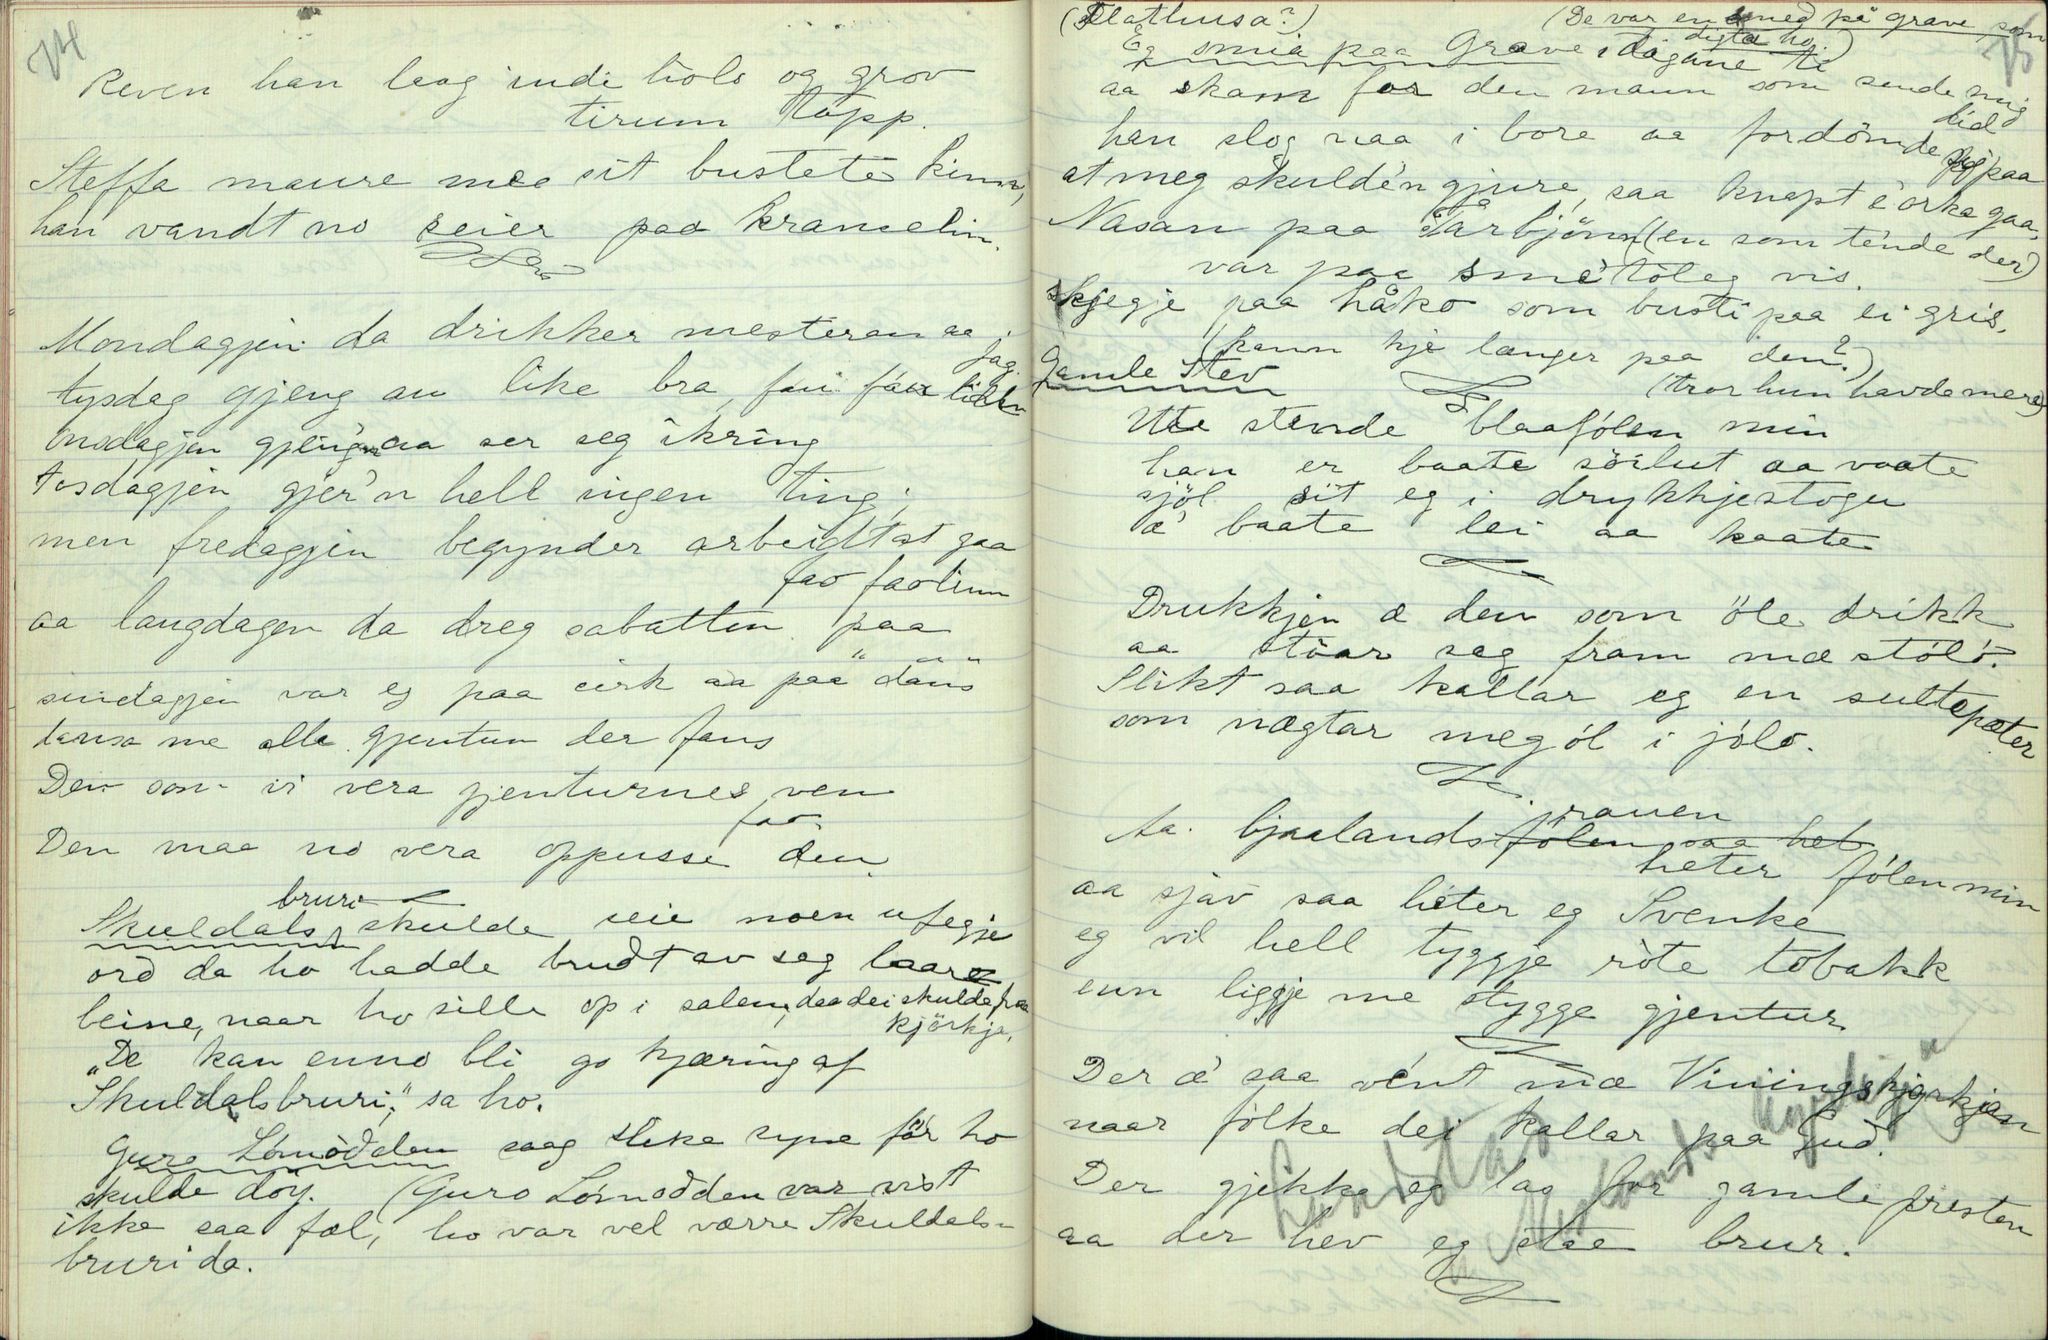 74
Reven han laag indi holo og grov
tirum Topp.
Steffa maure mæ sit bustete kinn,
han vandt no seier paa kranselin.
Mondagjen da drikker mesteran aa jag.
tysdag gjeng an like bra, fari
onsdagjen gjeng'n aa ser seg ikring
tosdagjen gjer'n hell ingen ting;
men fredagjen begynder arbeidt at gaa
fao faolium
aa laugdagen da dreg sabatten paa
sundagjen var eg paa cirk aa paa "dans"
dansa me alle gjentun der fans
Den som vi vera gjenturnes ven
fao.
Den maa no vera oppusse den.
Skuldalsbruri skulde seie noen ufegje
ord da ho hadde brudt av seg laare
beine, naar ho sille op i salen, daa dei skulde fraa
kjörkje.
"De kan enno bli go kjæring af
Skuldalsbruri," sa ho.
Guro Lömodden saag slike syne för ho
skulde döy. (Guro Lömodden var vist
ikke saa fæl, ho var vel værre Skuldals-
bruri da.
75
(Flathusa?) (De var en smed på Grave som
digta ho.)
Eg smia paa Grave i dagane ti
aa skam for den mann som sende mig
hid
han slog naa i bore aa fordömde seg paa
at meg skulde'n gjure, saa knapt e orka gaa.
Nasan paa Tarbjönn (en som tende der)
var paa smétöleg vis.
skjegje paa Håko som busti paa ei gris.
(kann kje længer paa den?)
Gamle Stev (tror hun havde mere)
Ute stende blaafolen min
han er baate söilut aa vaate
sjöl sit eg i drykkjestogu
æ baate lei aa kaate
Drukkjen æ den som öle drikk
aa stöar seg fram mæ stólo.
Slikt saa kallar eg en sultepæter
som nægtar meg öl i jólo.
Aa. bjaalands folen saa het
rauen
heter fölen min
aa sjav saa heter eg Svenke
eg vil hell tyggje röte tobakk
enn liggje me stygge gjentur.
Der æ saa vent mæ Viningskjørkjen
naar fólke dei kallar paa Gud.
Der gjekk eg laa for gamle presten
aa der hev eg staae brur.